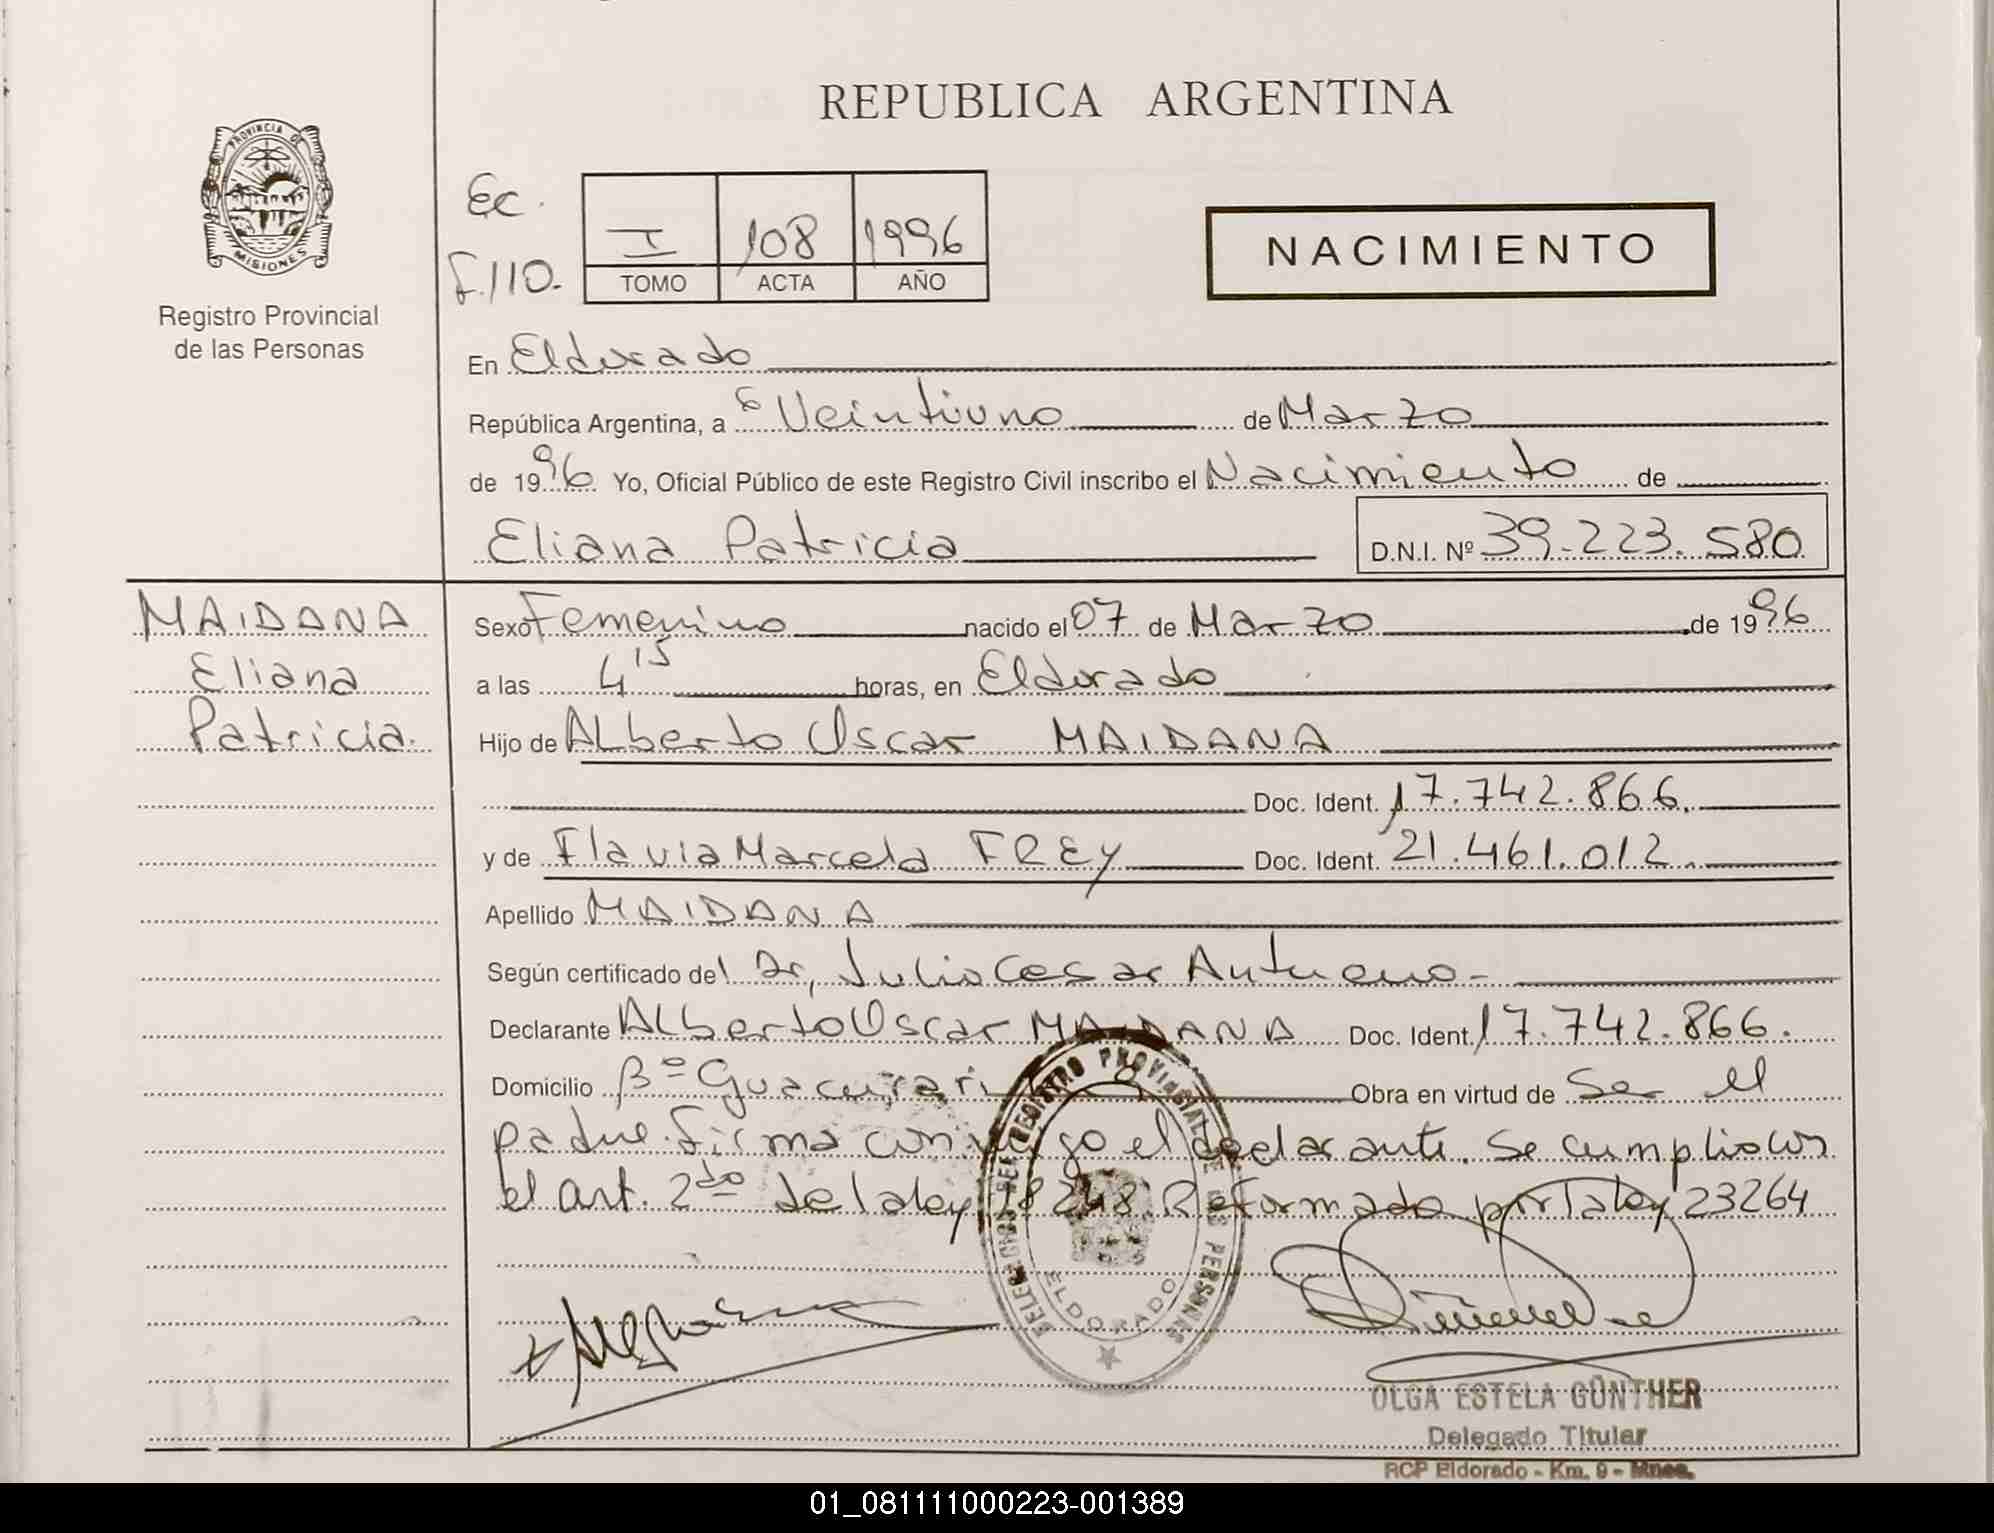 REPUBLICA ARGENTINA
PROVINCIA DE
MISIONES
Registro Provincial
de las Personas
Ec.
F.110.
I 108 1996
TOMO ACTA AÑO
NACIMIENTO
En Eldorado
República Argentina, a Veintiuno de Marzo
de 1996 Yo, Oficial Público de este Registro Civil inscribo el Nacimiento de
Eliana Patricia D.N.I. Nº 39.223.580
MAIDANA
Eliana
Patricia.
Sexo Femenino nacido el 07 de Marzo de 1996
a las 4 15 horas, en Eldorado
Hijo de Alberto Oscar MAIDANA
Doc. Ident. 17.742.866.
y de Flavia Marcela FREY Doc. Ident. 21.461.012.
Apellido MAIDANA
Según certificado del Dr, Julio Cesar Antueno-
Declarante Alberto Oscar MAIDANA Doc. Ident. 17.742.866.
Domicilio Bº Guacurari Obra en virtud de Ser el
padre. firma conmigo el declarante. Se cumplio con
el art. 2do de la ley 18248. Reformado por la ley 23264
DELEGACION DEL REGISTRO PROVINCIAL DE LAS PERSONAS
ELDORADO
OLGA ESTELA GÜNTHER
Delegado Titular
RCP Eldorado - Km. 9 - Mnes.
01_081111000223-001389